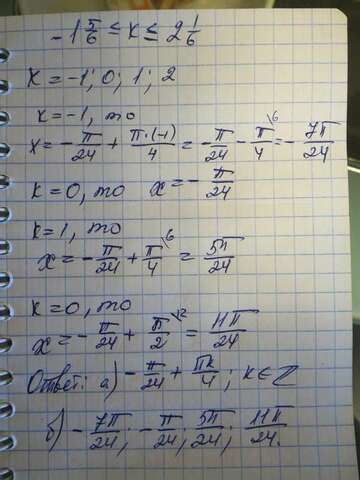 -1 5/6 ≤ k ≤ 2 1/6
k = -1; 0; 1; 2
k = -1, то
x = -π/24 + π·(-1)/4 = -π/24 - π/4 \6 = -7π/24
k = 0, то x = -π/24
k = 1, то
x = -π/24 + π/4 \6 = 5π/24
k = 0, то
x = -π/24 + π/2 \12 = 11π/24
Ответ: а) -π/24 + πk/4; k∈Z
б) -7π/24; -π/24; 5π/24; 11π/24.